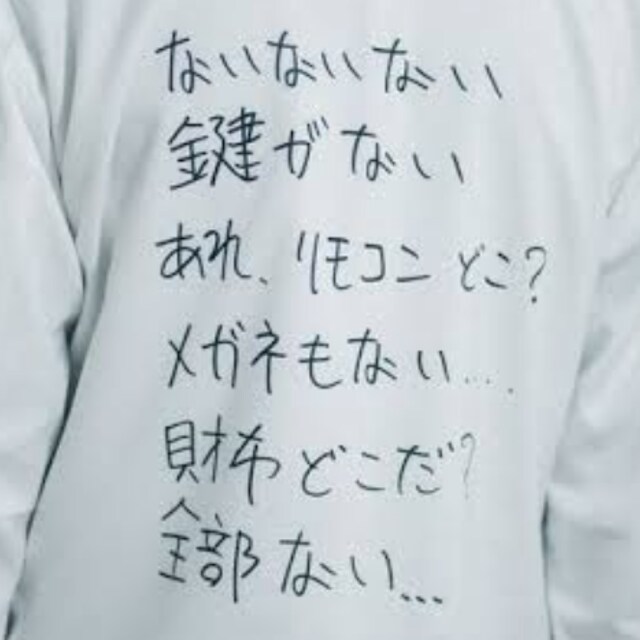 ないないない
鍵がない
あれ、リモコンどこ?
メガネもない....
財布どこだ?
全部ない...